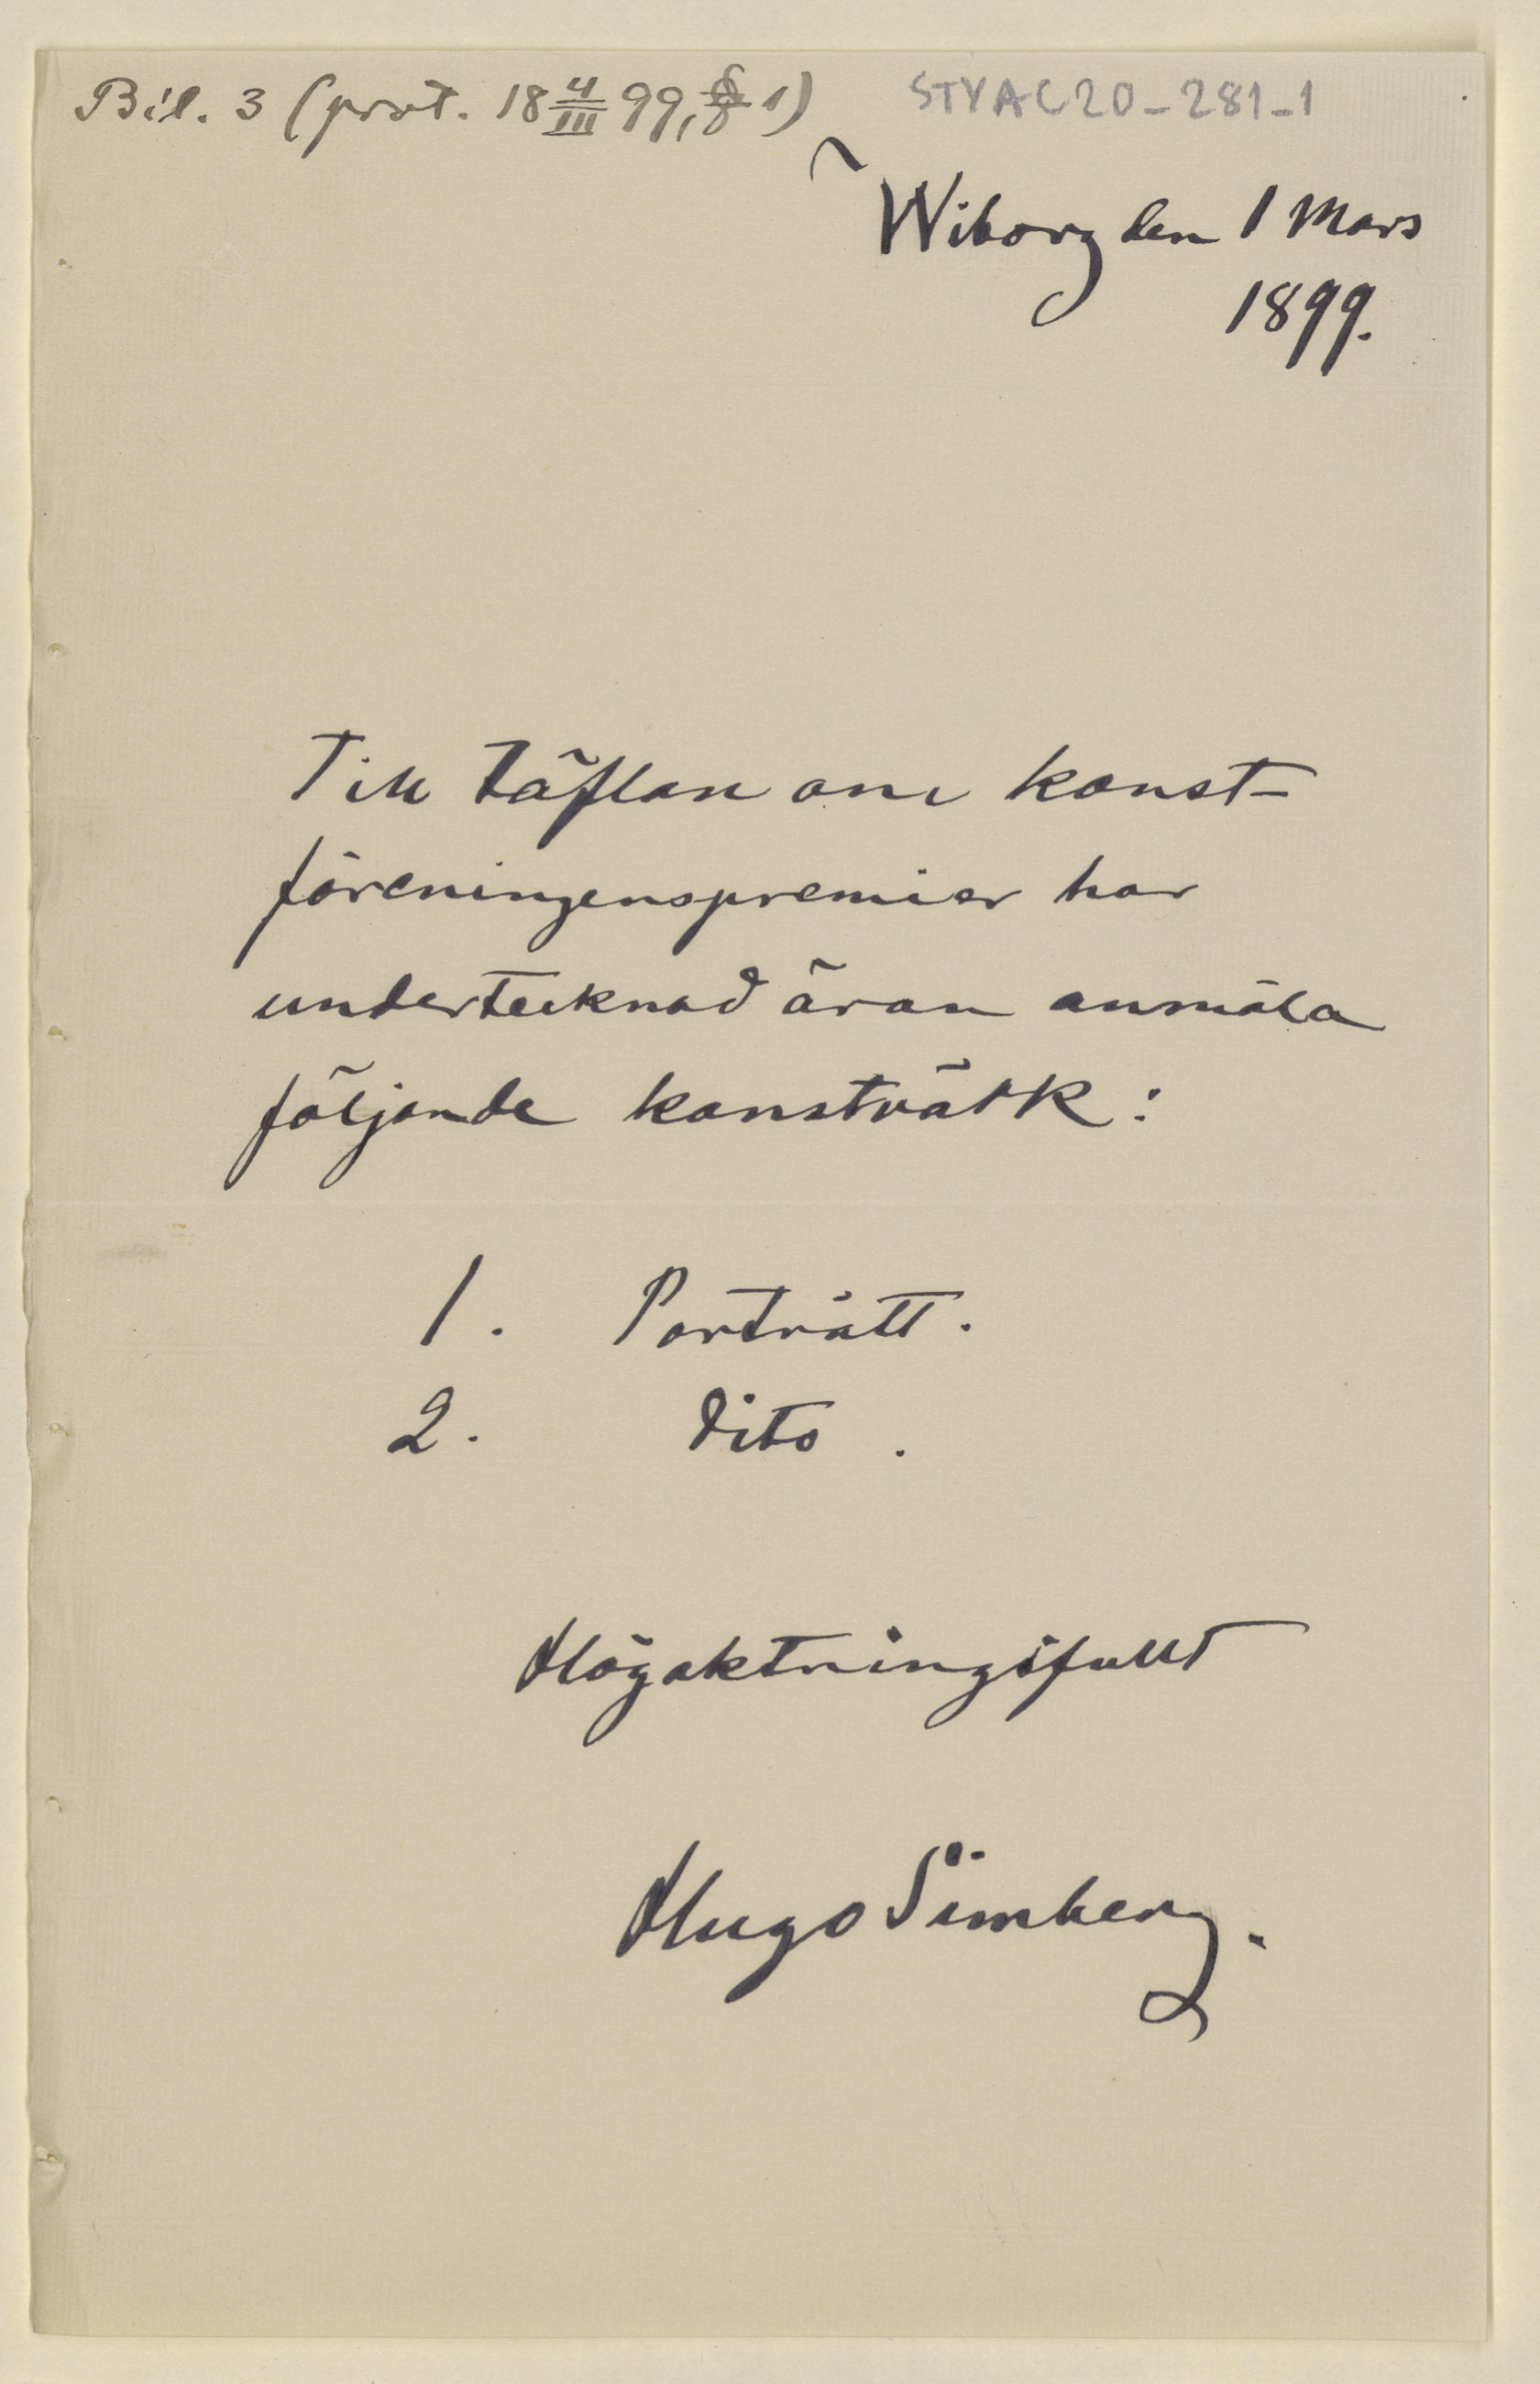 Bil. 3 (prot. 18 4/III 99, § 1)
STYAC20-281-1
Wiborg den 1 Mars
1899.
Till täflan om konst-
föreningenspremier har
undertecknad äran anmäla
följande konstvärk:
1. Porträtt.
2. dito.
Högaktningsfullt
Hugo Simberg.